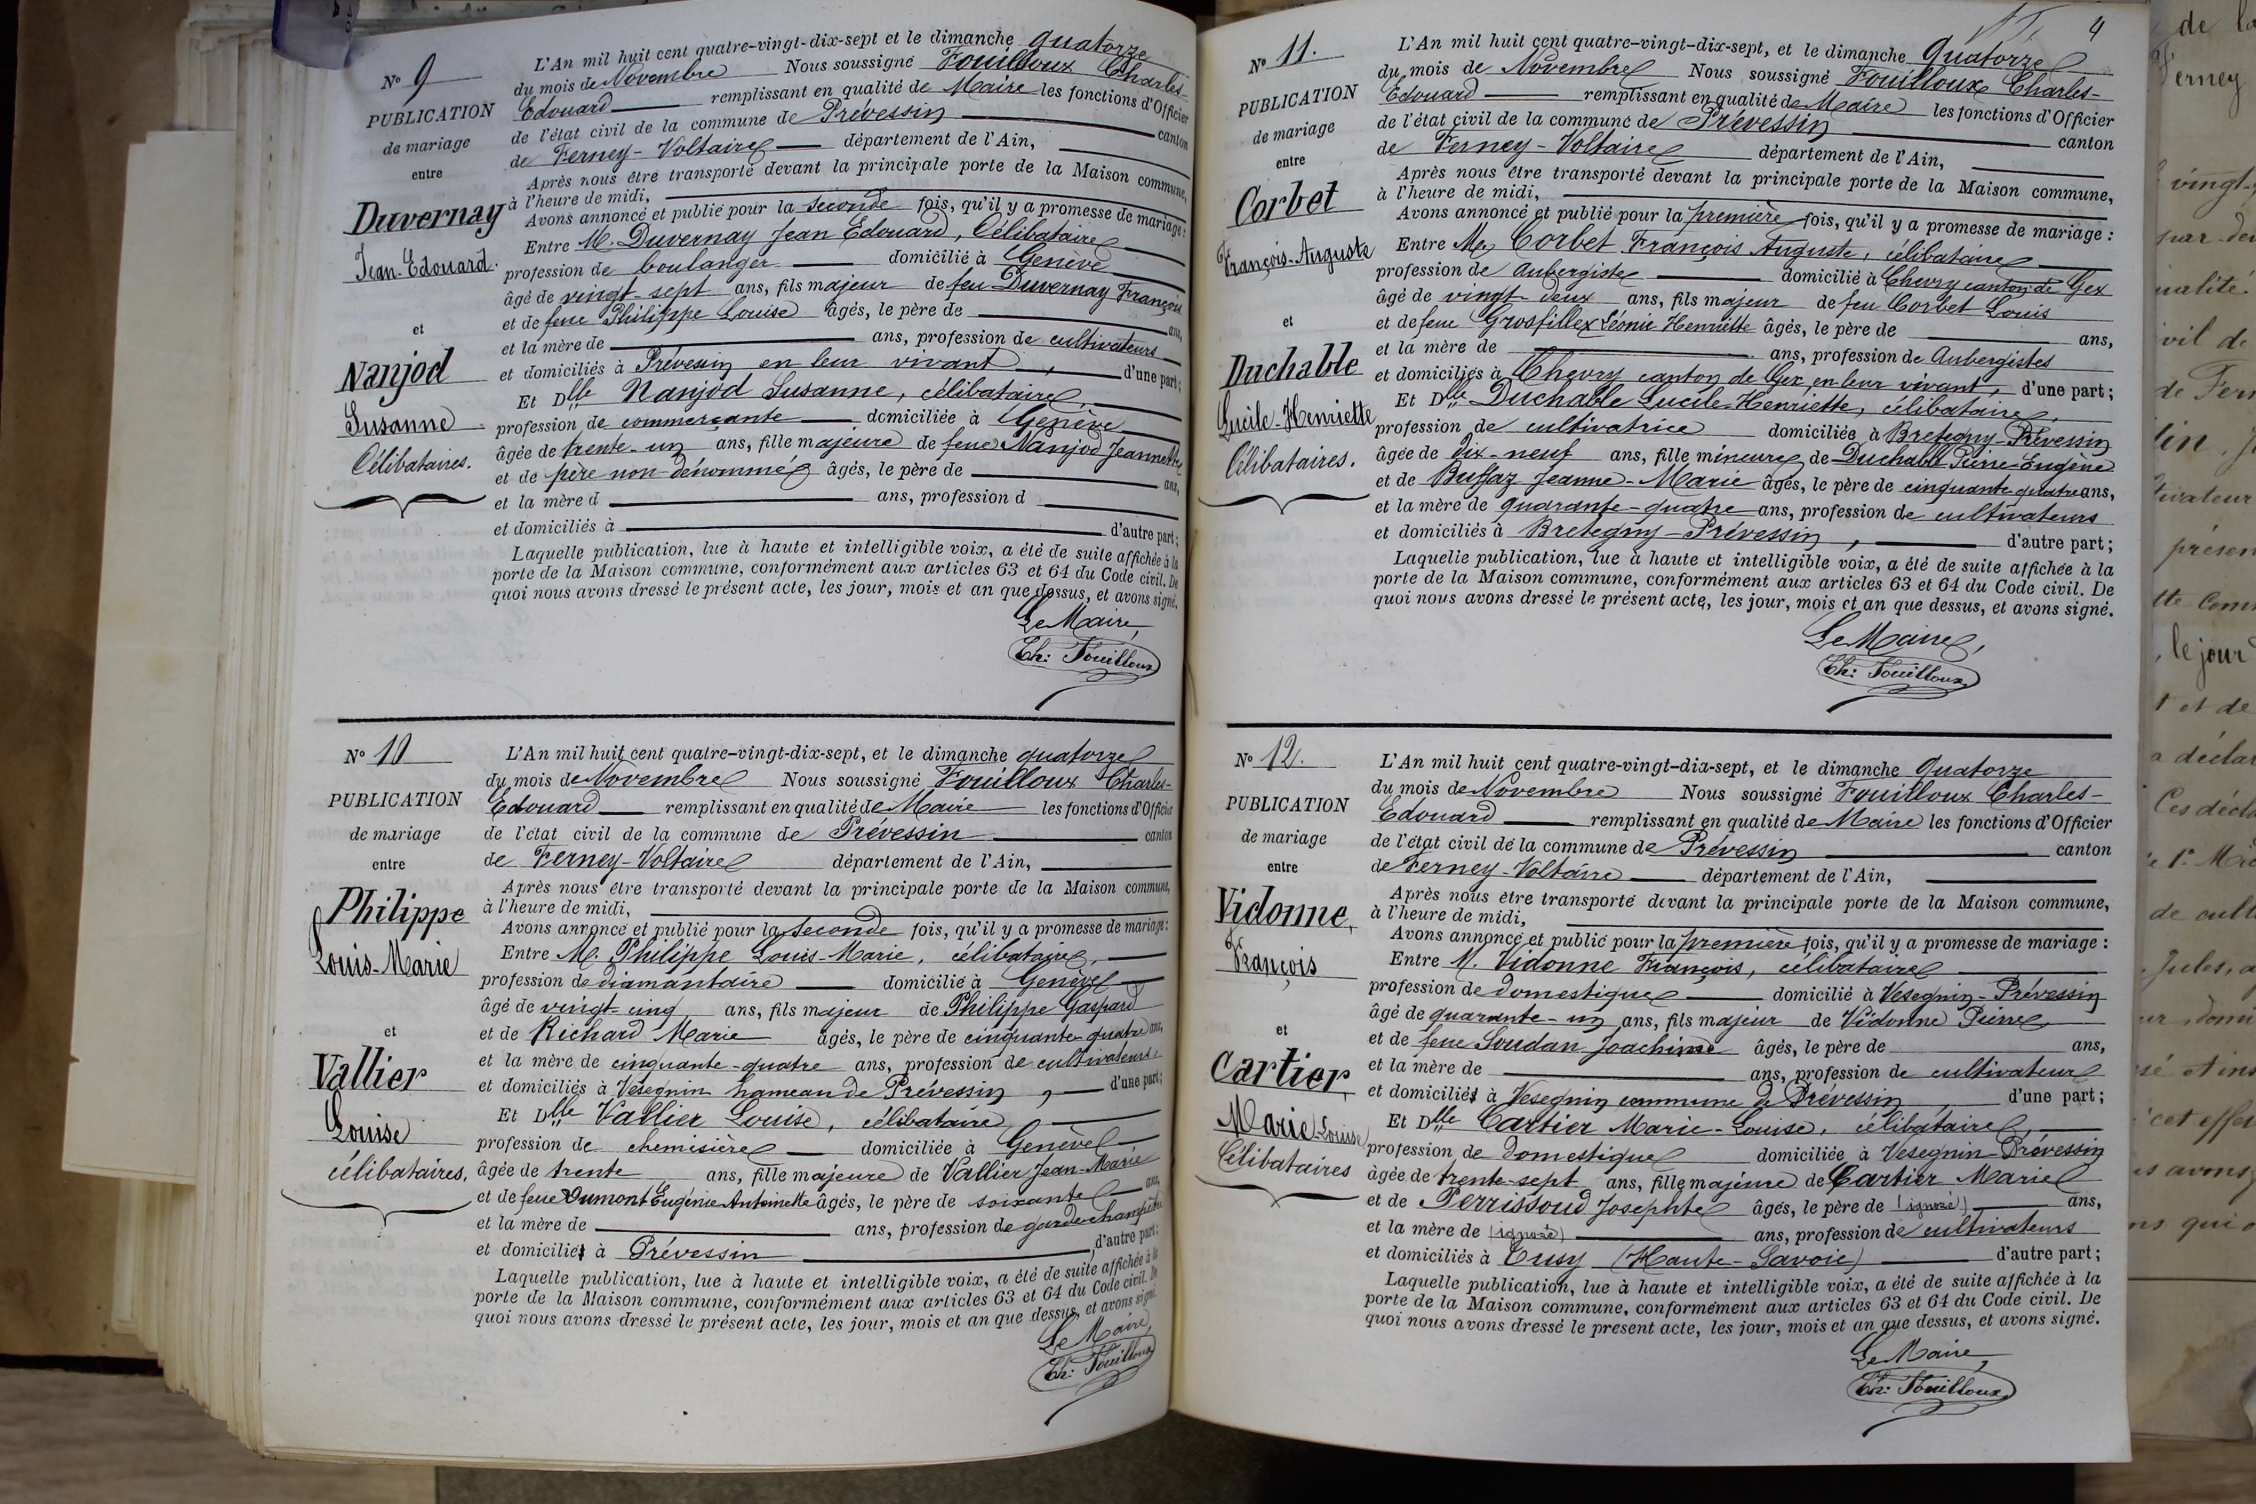 N° 9
PUBLICATION
de mariage
entre
Duvernay
Jean-Edouard.
et
Nanjod
Susanne
Célibataires.
L'An mil huit cent quatre-vingt-dix-sept et le dimanche quatorze
du mois de Novembre Nous soussigné Fouilloux Charles-
Edouard remplissant en qualité de Maire les fonctions d'Officier
de l'état civil de la commune de Prévessin canton
de Ferney-Voltaire département de l'Ain,
Après nous être transporté devant la principale porte de la Maison commune,
à l'heure de midi,
Avons annoncé et publié pour la seconde fois, qu'il y a promesse de mariage :
Entre M. Duvernay Jean Edouard, Célibataire
profession de boulanger domicilié à Genève
âgé de vingt-sept ans, fils majeur de feu Duvernay François
et de feue Philippe Louise âgés, le père de ans,
et la mère de ans, profession de cultivateurs
et domiciliés à Prévessin en leur vivant, d'une part ;
Et Dlle Nanjod Susanne, célibataire,
profession de commerçante domiciliée à Genève
âgée de trente-un ans, fille majeure de feue Nanjod Jeannette
et de père non dénommé âgés, le père de ans,
et la mère d ans, profession d
et domiciliés à d'autre part ;
Laquelle publication, lue à haute et intelligible voix, a été de suite affichée à la
porte de la Maison commune, conformément aux articles 63 et 64 du Code civil. De
quoi nous avons dressé le présent acte, les jour, mois et an que dessus, et avons signé.
Le Maire,
Ch: Fouilloux
N° 10
PUBLICATION
de mariage
entre
Philippe
Louis-Marie
et
Vallier
Louise
célibataires.
L'An mil huit cent quatre-vingt-dix-sept, et le dimanche quatorze
du mois de Novembre Nous soussigné Fouilloux Charles-
Edouard remplissant en qualité de Maire les fonctions d'Officier
de l'état civil de la commune de Prévessin canton
de Ferney-Voltaire département de l'Ain,
Après nous être transporté devant la principale porte de la Maison commune,
à l'heure de midi,
Avons annoncé et publié pour la seconde fois, qu'il y a promesse de mariage :
Entre M. Philippe Louis-Marie, célibataire,
profession de diamantaire domicilié à Genève
âgé de vingt-cinq ans, fils majeur de Philippe Gaspard
et de Richard Marie âgés, le père de cinquante quatre ans,
et la mère de cinquante-quatre ans, profession de cultivateurs
et domiciliés à Vésegnin hameau de Prévessin, d'une part ;
Et Dlle Vallier Louise, célibataire
profession de chemisière domiciliée à Genève
âgée de trente ans, fille majeure de Vallier Jean-Marie
et de feue Dumont Eugénie Antoinette âgés, le père de soixante ans,
et la mère de ans, profession de garde champêtre
et domiciliés à Prévessin, d'autre part :
Laquelle publication, lue à haute et intelligible voix, a été de suite affichée à la
porte de la Maison commune, conformément aux articles 63 et 64 du Code civil. De
quoi nous avons dressé le présent acte, les jour, mois et an que dessus, et avons signé.
Le Maire,
Ch: Fouilloux
4
N° 11.
PUBLICATION
de mariage
entre
Corbet
François-Auguste
et
Duchable
Lucile-Henriette
Célibataires.
L'An mil huit cent quatre-vingt-dix-sept, et le dimanche Quatorze
du mois de Novembre Nous soussigné Fouilloux Charles-
Edouard remplissant en qualité de Maire les fonctions d'Officier
de l'état civil de la commune de Prévessin canton
de Ferney-Voltaire département de l'Ain,
Après nous être transporté devant la principale porte de la Maison commune,
à l'heure de midi,
Avons annoncé et publié pour la première fois, qu'il y a promesse de mariage :
Entre Mr Corbet François Auguste, célibataire
profession de aubergiste domicilié à Chevry canton de Gex
âgé de vingt-deux ans, fils majeur de feu Corbet Louis
et de feue Grosfillex Léonie Henriette âgés, le père de ans,
et la mère de ans, profession de Aubergistes
et domiciliés à Chevry canton de Gex en leur vivant, d'une part ;
Et Dlle Duchable Lucile-Henriette, célibataire,
profession de cultivatrice domiciliée à Bretegny-Prévessin
âgée de dix-neuf ans, fille mineure de Duchable Pierre-Eugène
et de Buffaz Jeanne-Marie âgés, le père de cinquante quatre ans,
et la mère de quarante-quatre ans, profession de cultivateurs
et domiciliés à Bretegny-Prévessin, d'autre part ;
Laquelle publication, lue à haute et intelligible voix, a été de suite affichée à la
porte de la Maison commune, conformément aux articles 63 et 64 du Code civil. De
quoi nous avons dressé le présent acte, les jour, mois et an que dessus, et avons signé.
Le Maire,
Ch: Fouilloux
N° 12.
PUBLICATION
de mariage
entre
Vidonne,
François
et
Cartier
Marie-Louise
Célibataires
L'An mil huit cent quatre-vingt-dix-sept, et le dimanche quatorze
du mois de Novembre Nous soussigné Fouilloux Charles-
Edouard remplissant en qualité de Maire les fonctions d'Officier
de l'état civil de la commune de Prévessin canton
de Ferney-Voltaire département de l'Ain,
Après nous être transporté devant la principale porte de la Maison commune,
à l'heure de midi,
Avons annoncé et publié pour la première fois, qu'il y a promesse de mariage :
Entre M. Vidonne François, célibataire
profession de domestique domicilié à Vesegnin-Prévessin
âgé de quarante-un ans, fils majeur de Vidonne Pierre
et de feue Soudan Joachime âgés, le père de ans,
et la mère de ans, profession de cultivateur
et domiciliés à Vesegnin commune de Prévessin, d'une part ;
Et Dlle Cartier Marie-Louise, célibataire,
profession de domestique domiciliée à Vesegnin-Prévessin
âgée de trente-sept ans, fille majeure de Cartier Marie
et de Perrissoud Josephte âgés, le père de (ignoré) ans,
et la mère de (ignoré) ans, profession de cultivateurs
et domiciliés à Cusy (Haute-Savoie) d'autre part ;
Laquelle publication, lue à haute et intelligible voix, a été de suite affichée à la
porte de la Maison commune, conformément aux articles 63 et 64 du Code civil. De
quoi nous avons dressé le présent acte, les jour, mois et an que dessus, et avons signé.
Le Maire,
Ch: Fouilloux